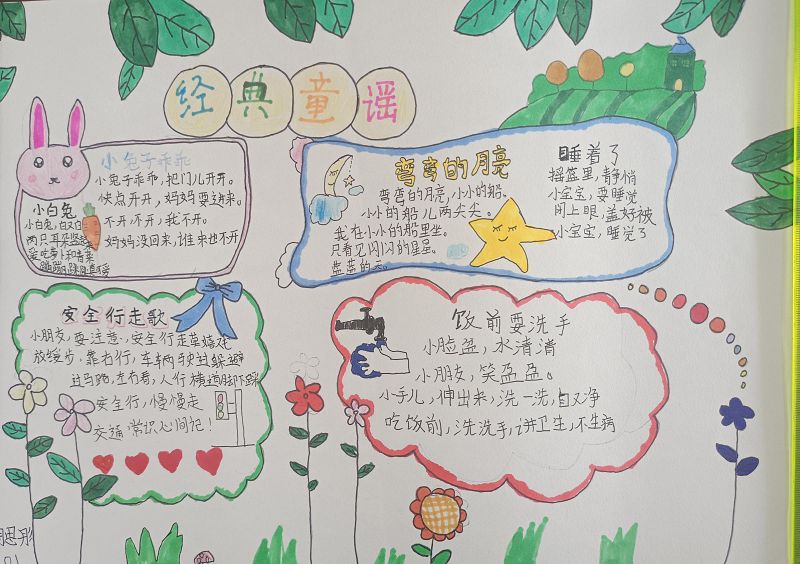 经典童谣
小兔子乖乖
小兔子乖乖,把门儿开开。
快点开开,妈妈要进来。
不开不开,我不开。
妈妈没回来,谁来也不开
小白兔
小白兔,白又白
两只耳朵竖起来
爱吃萝卜和青菜
蹦蹦跳跳真可爱
弯弯的月亮
弯弯的月亮,小小的船。
小小的船儿两头尖。
我在小小的船里坐。
只看见闪闪的星星。
蓝蓝的天。
睡着了
摇篮里,静悄悄
小宝宝,要睡觉
闭上眼,盖好被
小宝宝,睡觉了
安全行走歌
小朋友,要注意,安全行走莫嬉戏
放缓步,靠右行,车辆驶过躲避
过马路,左右看,人行横道脚下踩
安全行,慢慢走
交通常识心间记!
饭前要洗手
小脸盆,水清清
小朋友,笑盈盈。
小手儿,伸出来,洗一洗,白又净
吃饭前,洗洗手,讲卫生,不生病